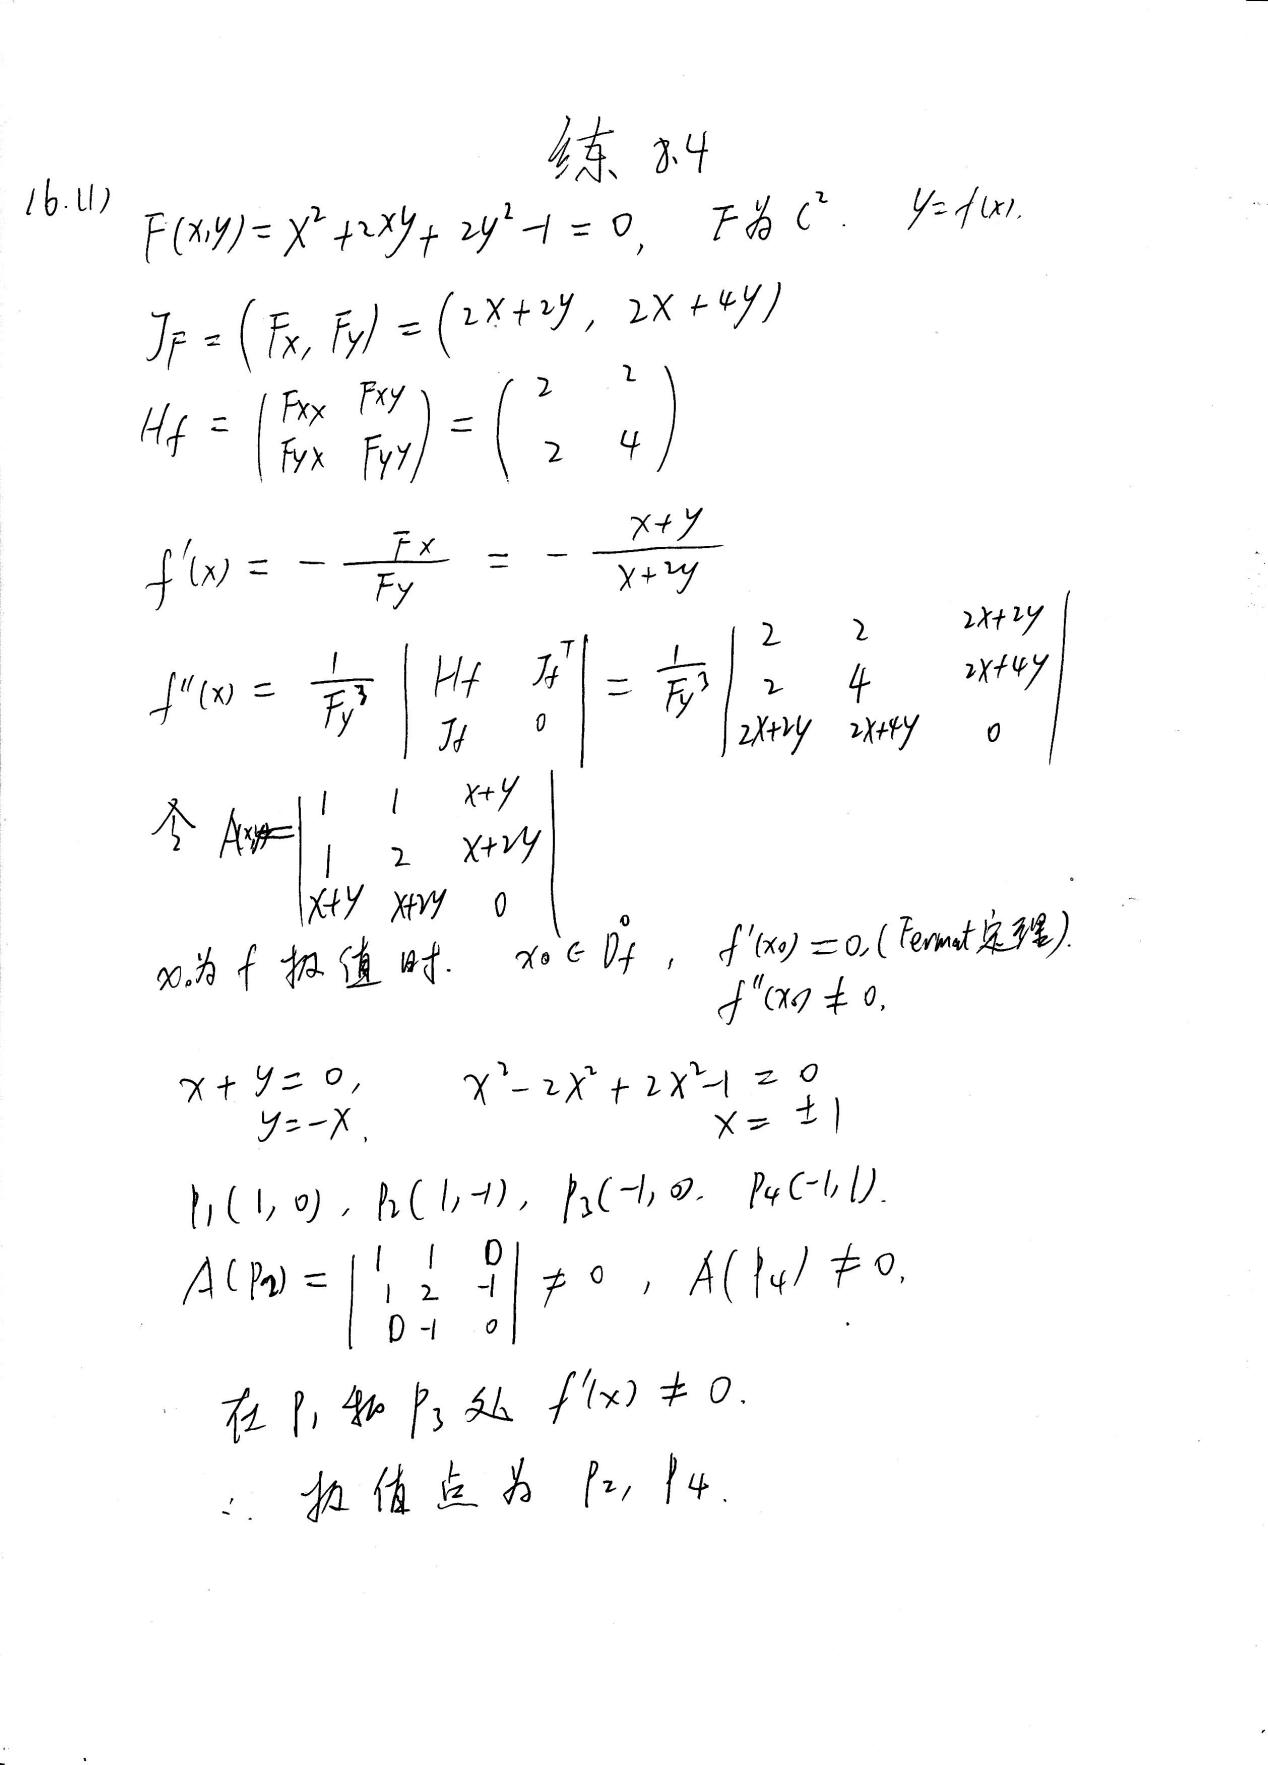 练 8.4
16.(1)
F(x,y) = x² + 2xy + 2y² - 1 = 0, F为C². y=f(x).
J_F = (Fx, Fy) = (2x+2y, 2x+4y)
H_f = ( Fxx Fxy ; Fyx Fyy ) = ( 2 2 ; 2 4 )
f'(x) = - Fx / Fy = - (x+y) / (x+2y)
f''(x) = 1/Fy³ | H_f J_f^T ; J_f 0 | = 1/Fy³ | 2 2 2x+2y ; 2 4 2x+4y ; 2x+2y 2x+4y 0 |
令 A = | 1 1 x+y ; 1 2 x+2y ; x+y x+2y 0 |
x₀为f极值时. x₀∈D̊f, f'(x₀)=0,(Fermat定理).
f''(x₀)≠0,
x+y=0, x²-2x²+2x²-1=0
y=-x, x=±1
P₁(1,0), P₂(1,-1), P₃(-1,0). P₄(-1,1).
A(P₂) = | 1 1 0 ; 1 2 -1 ; 0 -1 0 | ≠ 0, A(P₄)≠0,
在 P₁ 和 P₃ 处 f'(x)≠0.
∴ 极值点为 P₂, P₄.